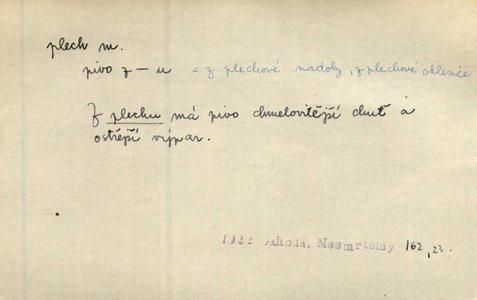 plech m.
pivo z – u = z plechové nadoby, z plechové sklenice
Z plechu má pivo chmelovitější chuť a
ostřejší výpar.
Nesmrtelný 162, 23.